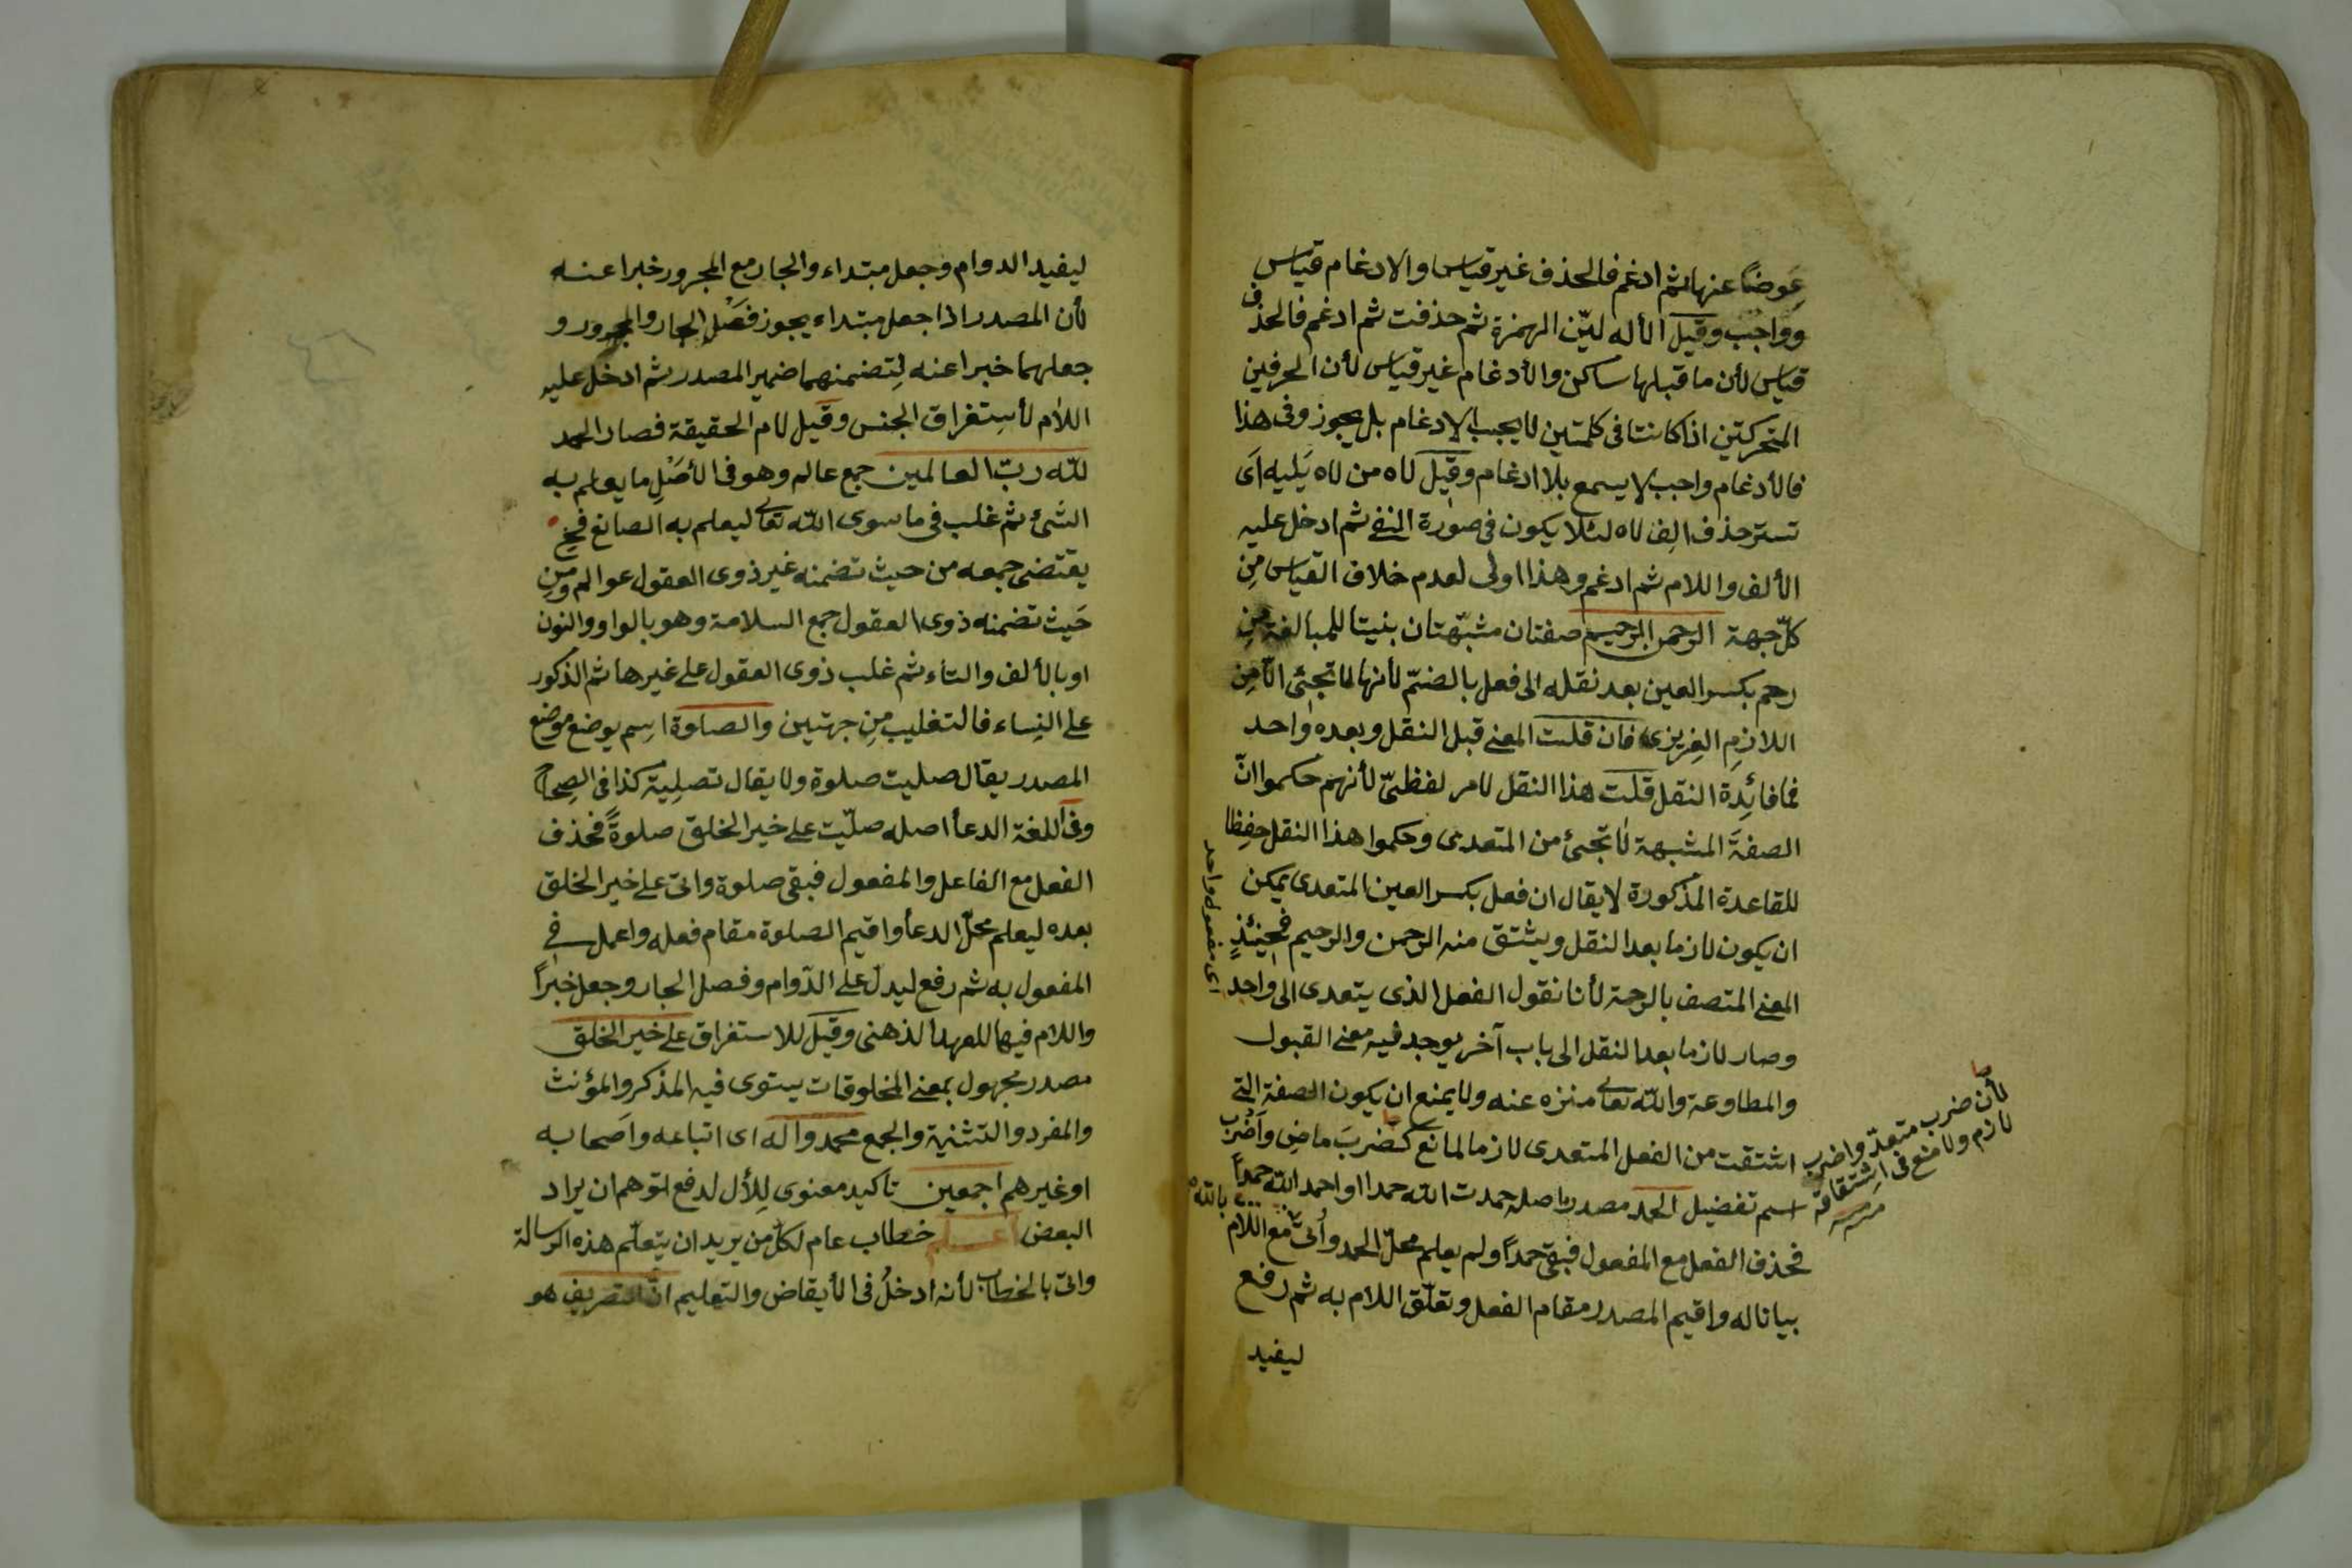 عِوضًا عنها ثم ادغم فالحذف غير قياس والادغام قياس
وواجب وقيل الأله ليّن الهمزة ثم حذفت ثم ادغم فالحذف
قياس لأن ما قبلها ساكن والأدغام غير قياس لأن الحرفين
المتحركتين اذا كانتا فى كلمتين لا يجب الادغام بل يجوز وفى هذا
فالأدغام واجب لا يسمع بلا ادغام وقيل لاه من لاه يَليه اَى
تستر حذف الِف لاه لئلا يكون فى صورة النفى ثم ادخل عليه
الألف واللام ثم ادغم وهذا اولى لعدم خلاف القياس مِن
كلّ جهة الرحمن الرحيم صفتان مشبّهتان بنيتا للمبالغة من
رحم بكسر العين بعد نقله الى فعل بالضمّ لأنها لا تجئ الّا مِن
اللازمِ الغريزى فان قلت المعنى قبل النقل وبعده واحد
فما فائدة النقل قلت هذا النقل لامر لفظىّ لأنهم حكموا انّ
الصفةَ المشبهة لا تجئ من المتعدى وحكموا هذا النقل حِفظا
للقاعدة المذكورة لا يقال ان فعل بكسر العين المتعدى يمكن
ان يكون لازما بعد النقل ويشتق منه الرحمن والرحيم فحينئذٍ
المعنى المتصف بالرحمة لأنا نقول الفعل الذى يتعدى الى واحد
اى مفعول واحد
وصار لازما بعد النقل الى باب آخر يوجد فيه معنى القبول
والمطاوعة والله تعالى منزه عنه ولا يمنع ان يكون الصفة التى
اشتقت من الفعل المتعدى لازما لمانع كضربَ ماضِ واَضرب
لأن ضرب متعدّ واضرب
لازم ولا منع فى اشتقاقه
اسم تفضيل الحمد مصدر اصله حمدت الله حمدا او احمد الله حمداً
بالله
فحذف الفعل مع المفعول فبقى حمداً ولم يعلم محلّ الحمد وأُتى مع اللام
بيانا له واقيم المصدر مقام الفعل وتعلّق اللام به ثم رفع
ليفيد
ليفيد الدوام وجعل مبتداء والجار مع المجرور خبرا عنه
لأن المصدر اذا جعل مبتداء يجوز فصل الجار والمجرور و
جعلهما خبرا عنه لِتضمنهما ضمير المصدر ثم ادخل عليه
اللام لأستغراق الجنس وقيل لام الحقيقة فصار الحمد
للّه ربّ العالمين جمع عالم وهو فى الأصل ما يعلم به
الشئ ثم غلب فى ما سوى اللّه تعالى ليعلم به الصانع فح
يقتضى جمعه من حيث تضمنه غير ذوى العقول عوالم ومن
حَيث تضمنه ذوى العقول جمع السلامة وهو بالواو والنون
او بالألف والتاء ثم غلب ذوى العقول على غيرها ثم الذكور
على النِساء فالتغليب مِن جهتين والصلوة اسِم يوضع موضع
المصدر يقال صليت صلوة ولا يقال تصلِية كذا فى الصِحاح
وفى اللغة الدعأ اصله صلّيت على خير الخلق صلوةً فحذف
الفعل مع الفاعل والمفعول فبقى صلوة واتى على خير الخلق
بعده ليعلم محلّ الدعأ واقيم الصلوة مقام فعله واعمل فى
المفعول به ثم رفع ليدلّ على الدّوام وفصل الجار وجعل خبراً
واللام فيها للعهد الذهنى وقيل للاستغراق على خير الخلق
مصدر مجهول بمعنى المخلوقات يستوى فيه المذكر والمؤنث
والمفرد والتثنية والجمع محمد وآله اى اتباعه واَصحابه
او غيرهم اجمعين تاكيد معنوى لِلأل لدفع توهم ان يراد
البعض اعلم خطاب عام لكلّ من يريد ان يتعلّم هذه الرسالة
واتى بالخطاب لأنه ادخلُ فى الأيقاض والتعليم انّ التصريف هو